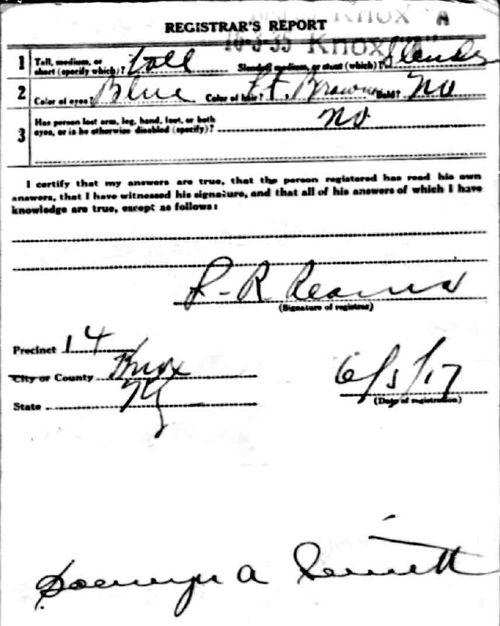 KNOX A
REGISTRAR'S REPORT
16-3-35 Knox A
1 Tall, medium, or short (specify which)? tall Slender, medium, or stout (which)? Slender
2 Color of eyes? Blue Color of hair? Lt. Brown Bald? No
3 Has person lost arm, leg, hand, foot, or both eyes, or is he otherwise disabled (specify)? no
I certify that my answers are true, that the person registered has read his own
answers, that I have witnessed his signature, and that all of his answers of which I have
knowledge are true, except as follows:
(Signature of registrar)
Precinct 14
City or County Knox
State Ky
6/5/17
(Date of registration)